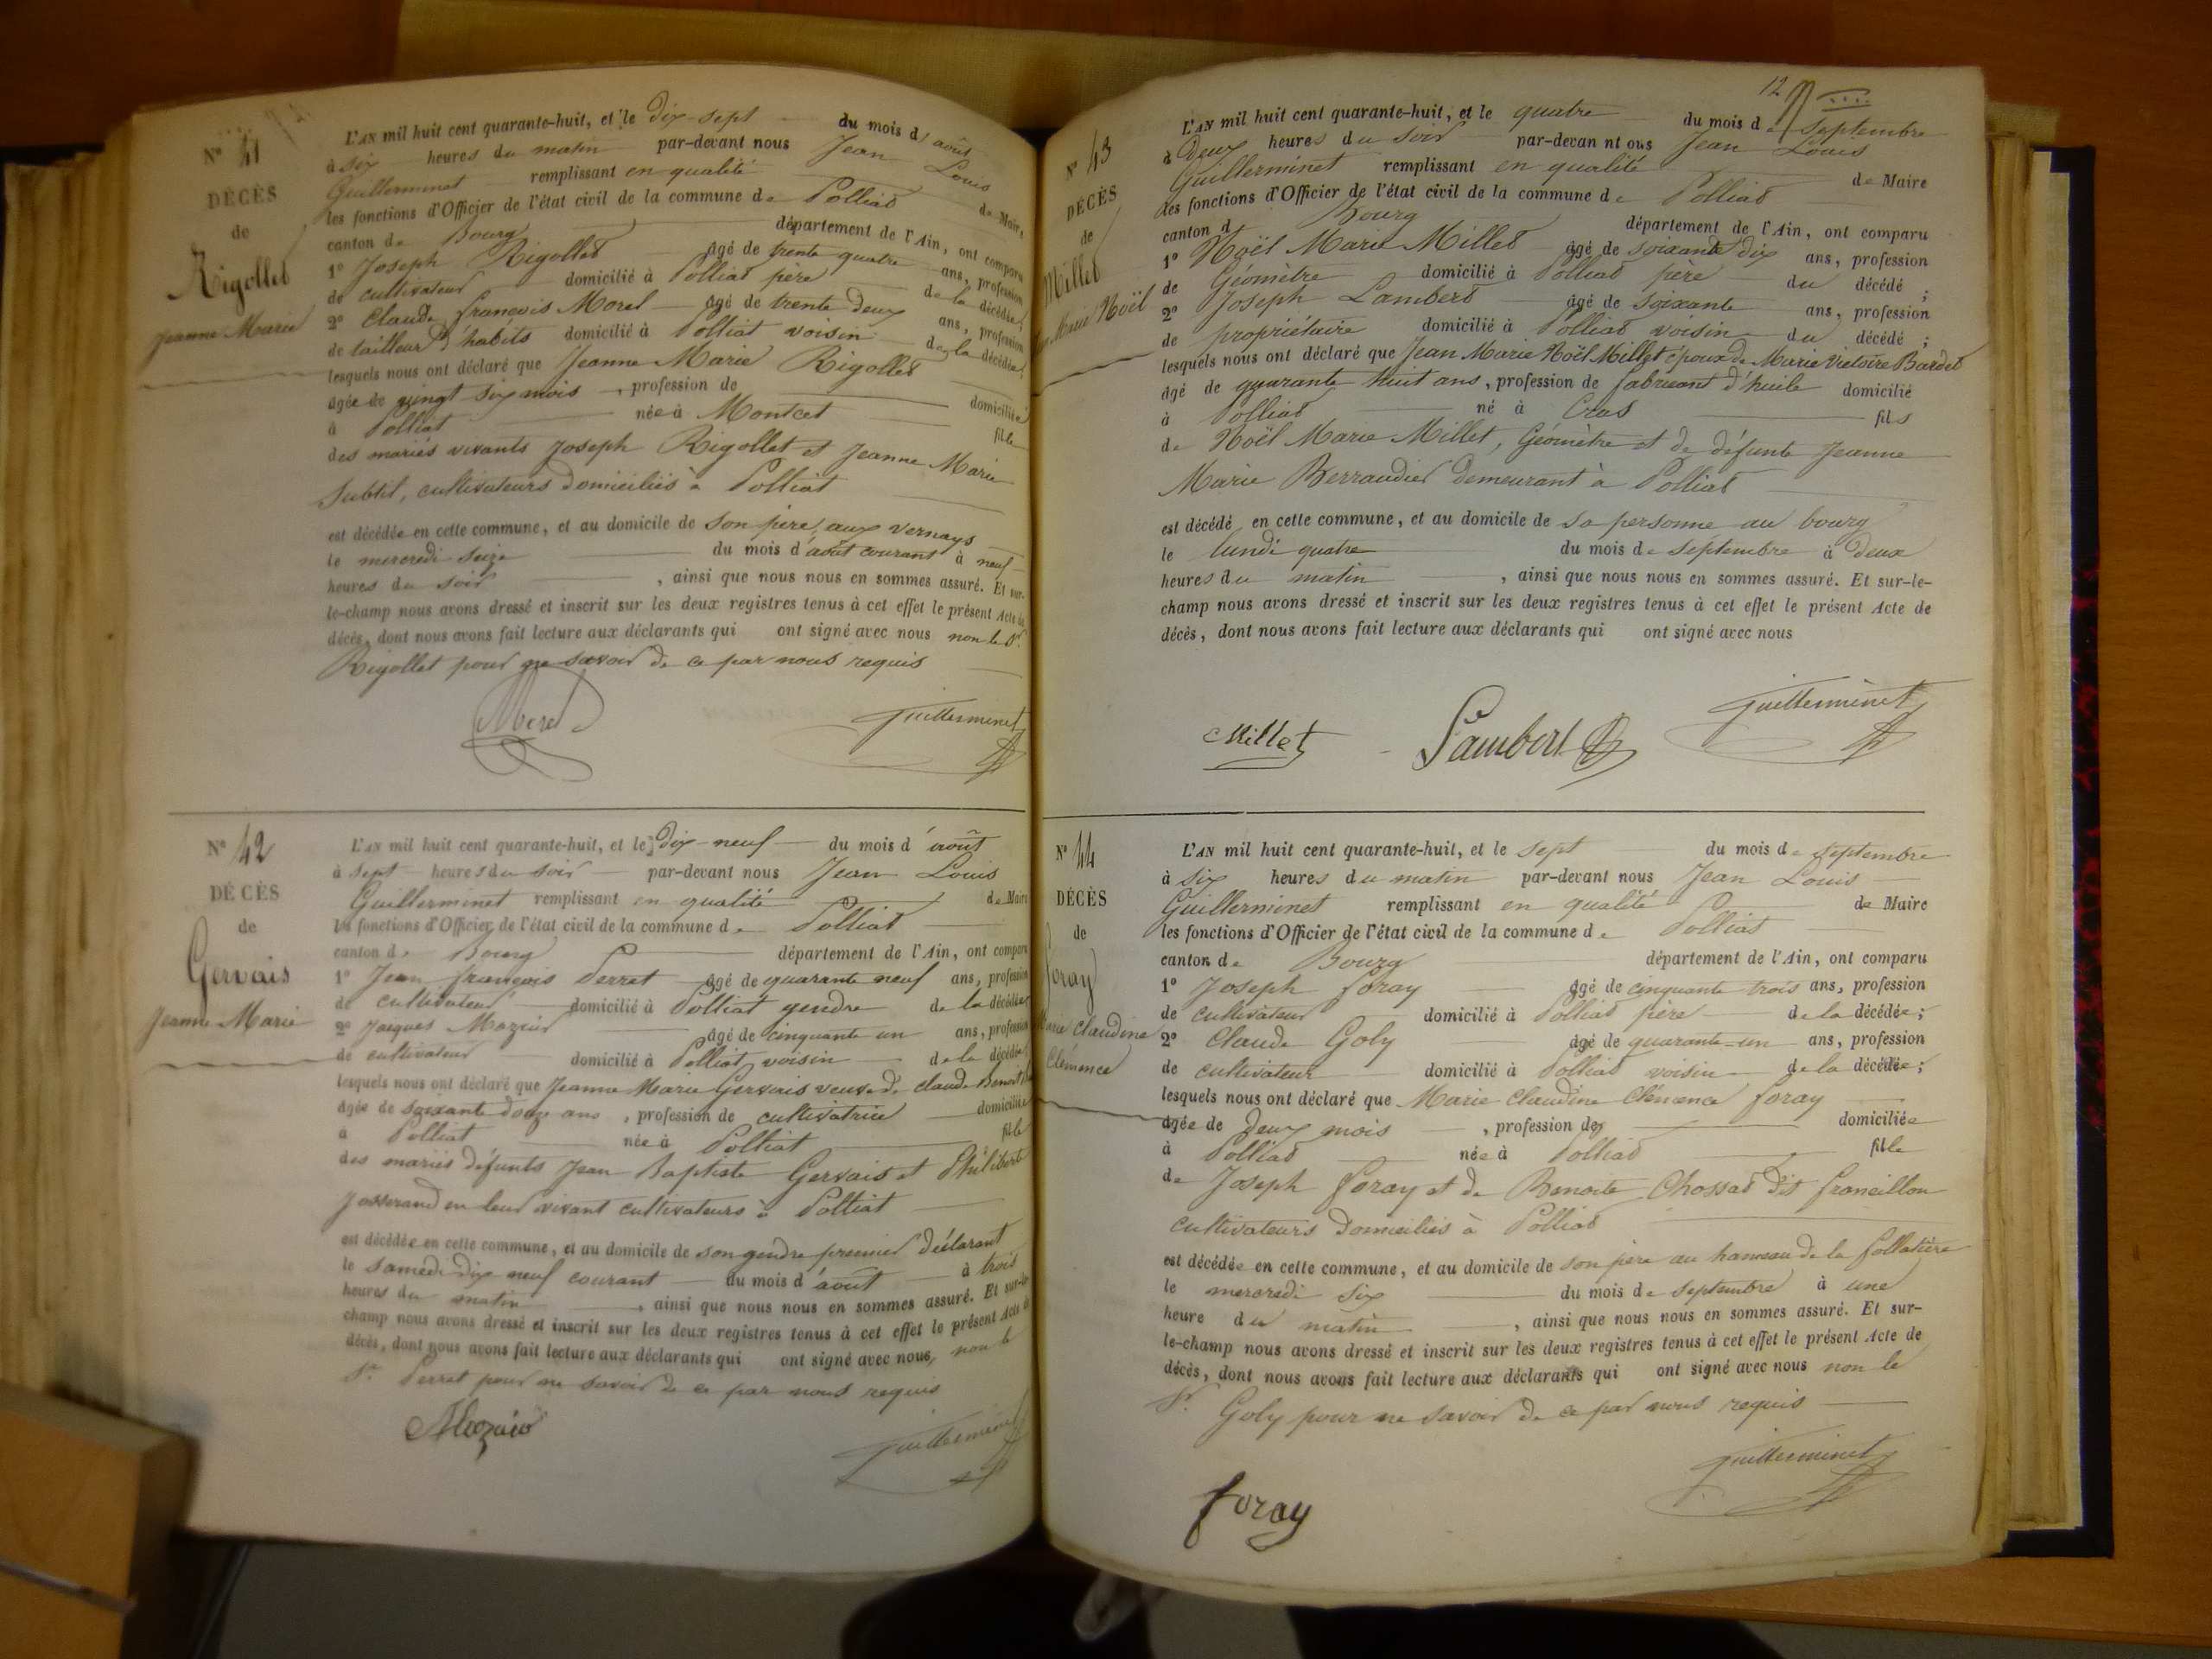 N° 41
DÉCÈS
de
Rigollet
Jeanne Marie
L'AN mil huit cent quarante-huit, et le dix-sept du mois d'août
à six heures du matin par-devant nous Jean Louis
Guillerminet remplissant en qualité de Maire,
les fonctions d'Officier de l'état civil de la commune de Polliat
canton de Bourg département de l'Ain, ont comparu
1° Joseph Rigollet âgé de trente quatre ans, profession
de cultivateur domicilié à Polliat père de la décédée;
2° Claude françois Morel âgé de trente deux ans, profession
de tailleur d'habits domicilié à Polliat voisin de la décédée;
lesquels nous ont déclaré que Jeanne Marie Rigollet
âgée de vingt six mois, profession de domiciliée
à Polliat née à Montcet fille
des mariés vivants Joseph Rigollet et Jeanne Marie
Subtil, cultivateurs domiciliés à Polliat
est décédée en cette commune, et au domicile de son père, aux vernays
le mercredi seize du mois d'août courant à neuf
heures du soir, ainsi que nous nous en sommes assuré. Et sur-
le-champ nous avons dressé et inscrit sur les deux registres tenus à cet effet le présent Acte de
décès, dont nous avons fait lecture aux déclarants qui ont signé avec nous non le Sr.
Rigollet pour ne savoir de ce par nous requis
Morel Guillerminet
N° 42
DÉCÈS
de
Gervais
Jeanne Marie
L'AN mil huit cent quarante-huit, et le dix-neuf du mois d'août
à sept heures du soir par-devant nous Jean Louis
Guillerminet remplissant en qualité de Maire
les fonctions d'Officier de l'état civil de la commune de Polliat
canton de Bourg département de l'Ain, ont comparu
1° Jean françois Perret âgé de quarante neuf ans, profession
de cultivateur domicilié à Polliat gendre de la décédée;
2° Jacques Mozuir âgé de cinquante un ans, profession
de cultivateur domicilié à Polliat voisin de la décédée;
lesquels nous ont déclaré que Jeanne Marie Gervais veuve de Claude Benoit
âgée de soixante douze ans, profession de cultivatrice domiciliée
à Polliat née à Polliat fille
des mariés défunts Jean Baptiste Gervais et Philiberte
Josserand en leur vivant cultivateurs à Polliat
est décédée en cette commune, et au domicile de son gendre premier déclarant
le samedi dix neuf courant du mois d'août à trois
heures du matin, ainsi que nous nous en sommes assuré. Et sur-le-
champ nous avons dressé et inscrit sur les deux registres tenus à cet effet le présent Acte de
décès, dont nous avons fait lecture aux déclarants qui ont signé avec nous, non le
Sr. Perret pour ne savoir de ce par nous requis
Guillerminet
12
N° 43
DÉCÈS
de
Millet
Marie Noël
L'AN mil huit cent quarante-huit, et le quatre du mois de septembre
à deux heures du soir par-devan nt ous Jean Louis
Guillerminet remplissant en qualité de Maire
les fonctions d'Officier de l'état civil de la commune de Polliat
canton d Bourg département de l'Ain, ont comparu
1° Noël Marie Millet âgé de soixante dix ans, profession
de Géomètre domicilié à Polliat père du décédé ;
2° Joseph Lambert âgé de soixante ans, profession
de propriétaire domicilié à Polliat voisin du décédé ;
lesquels nous ont déclaré que Jean Marie Noël Millet époux de Marie Victoire Bardet
âgé de quarante huit ans, profession de fabricant d'huile domicilié
à Polliat né à Cras fils
de Noël Marie Millet, Géomètre et de défunte Jeanne
Marie Berraudier demeurant à Polliat
est décédé en cette commune, et au domicile de sa personne au bourg
le lundi quatre du mois de septembre à deux
heures du matin, ainsi que nous nous en sommes assuré. Et sur-le-
champ nous avons dressé et inscrit sur les deux registres tenus à cet effet le présent Acte de
décès, dont nous avons fait lecture aux déclarants qui ont signé avec nous
Millet Lambert Guillerminet
N° 44
DÉCÈS
de
foray
Marie Claudine
Clémence
L'AN mil huit cent quarante-huit, et le sept du mois de septembre
à six heures du matin par-devant nous Jean Louis
Guillerminet remplissant en qualité de Maire
les fonctions d'Officier de l'état civil de la commune de Polliat
canton de Bourg département de l'Ain, ont comparu
1° Joseph foray âgé de cinquante trois ans, profession
de cultivateur domicilié à Polliat père de la décédée;
2° Claude Goly âgé de quarante-un ans, profession
de cultivateur domicilié à Polliat voisin de la décédée;
lesquels nous ont déclaré que Marie Claudine Clémence foray
âgée de deux mois, profession de domiciliée
à Polliat née à Polliat fille
de Joseph foray et de Benoite Chossat dit francillon
cultivateurs domiciliés à Polliat
est décédée en cette commune, et au domicile de son père au hameau de la follatière
le mercredi six du mois de septembre à une
heure du matin, ainsi que nous nous en sommes assuré. Et sur-
le-champ nous avons dressé et inscrit sur les deux registres tenus à cet effet le présent Acte de
décès, dont nous avons fait lecture aux déclarants qui ont signé avec nous non le
Sr. Goly pour ne savoir de ce par nous requis
foray Guillerminet